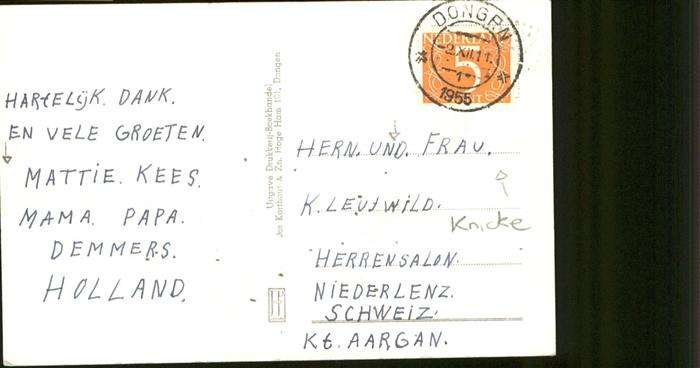 HARTELIJK. DANK.
EN VELE GROETEN.
MATTIE. KEES.
MAMA. PAPA.
DEMMERS.
HOLLAND.
Uitgave Drukkerij-Boekhandel
Jos Korthout & Zn. Hoge Ham 101, Dongen
DONGEN
1955
NEDERLAND
5
CENT
HERN. UND. FRAU.
K. LEUTWILD.
Knicke
HERRENSALON.
NIEDERLENZ.
SCHWEIZ.
Kt. AARGAN.